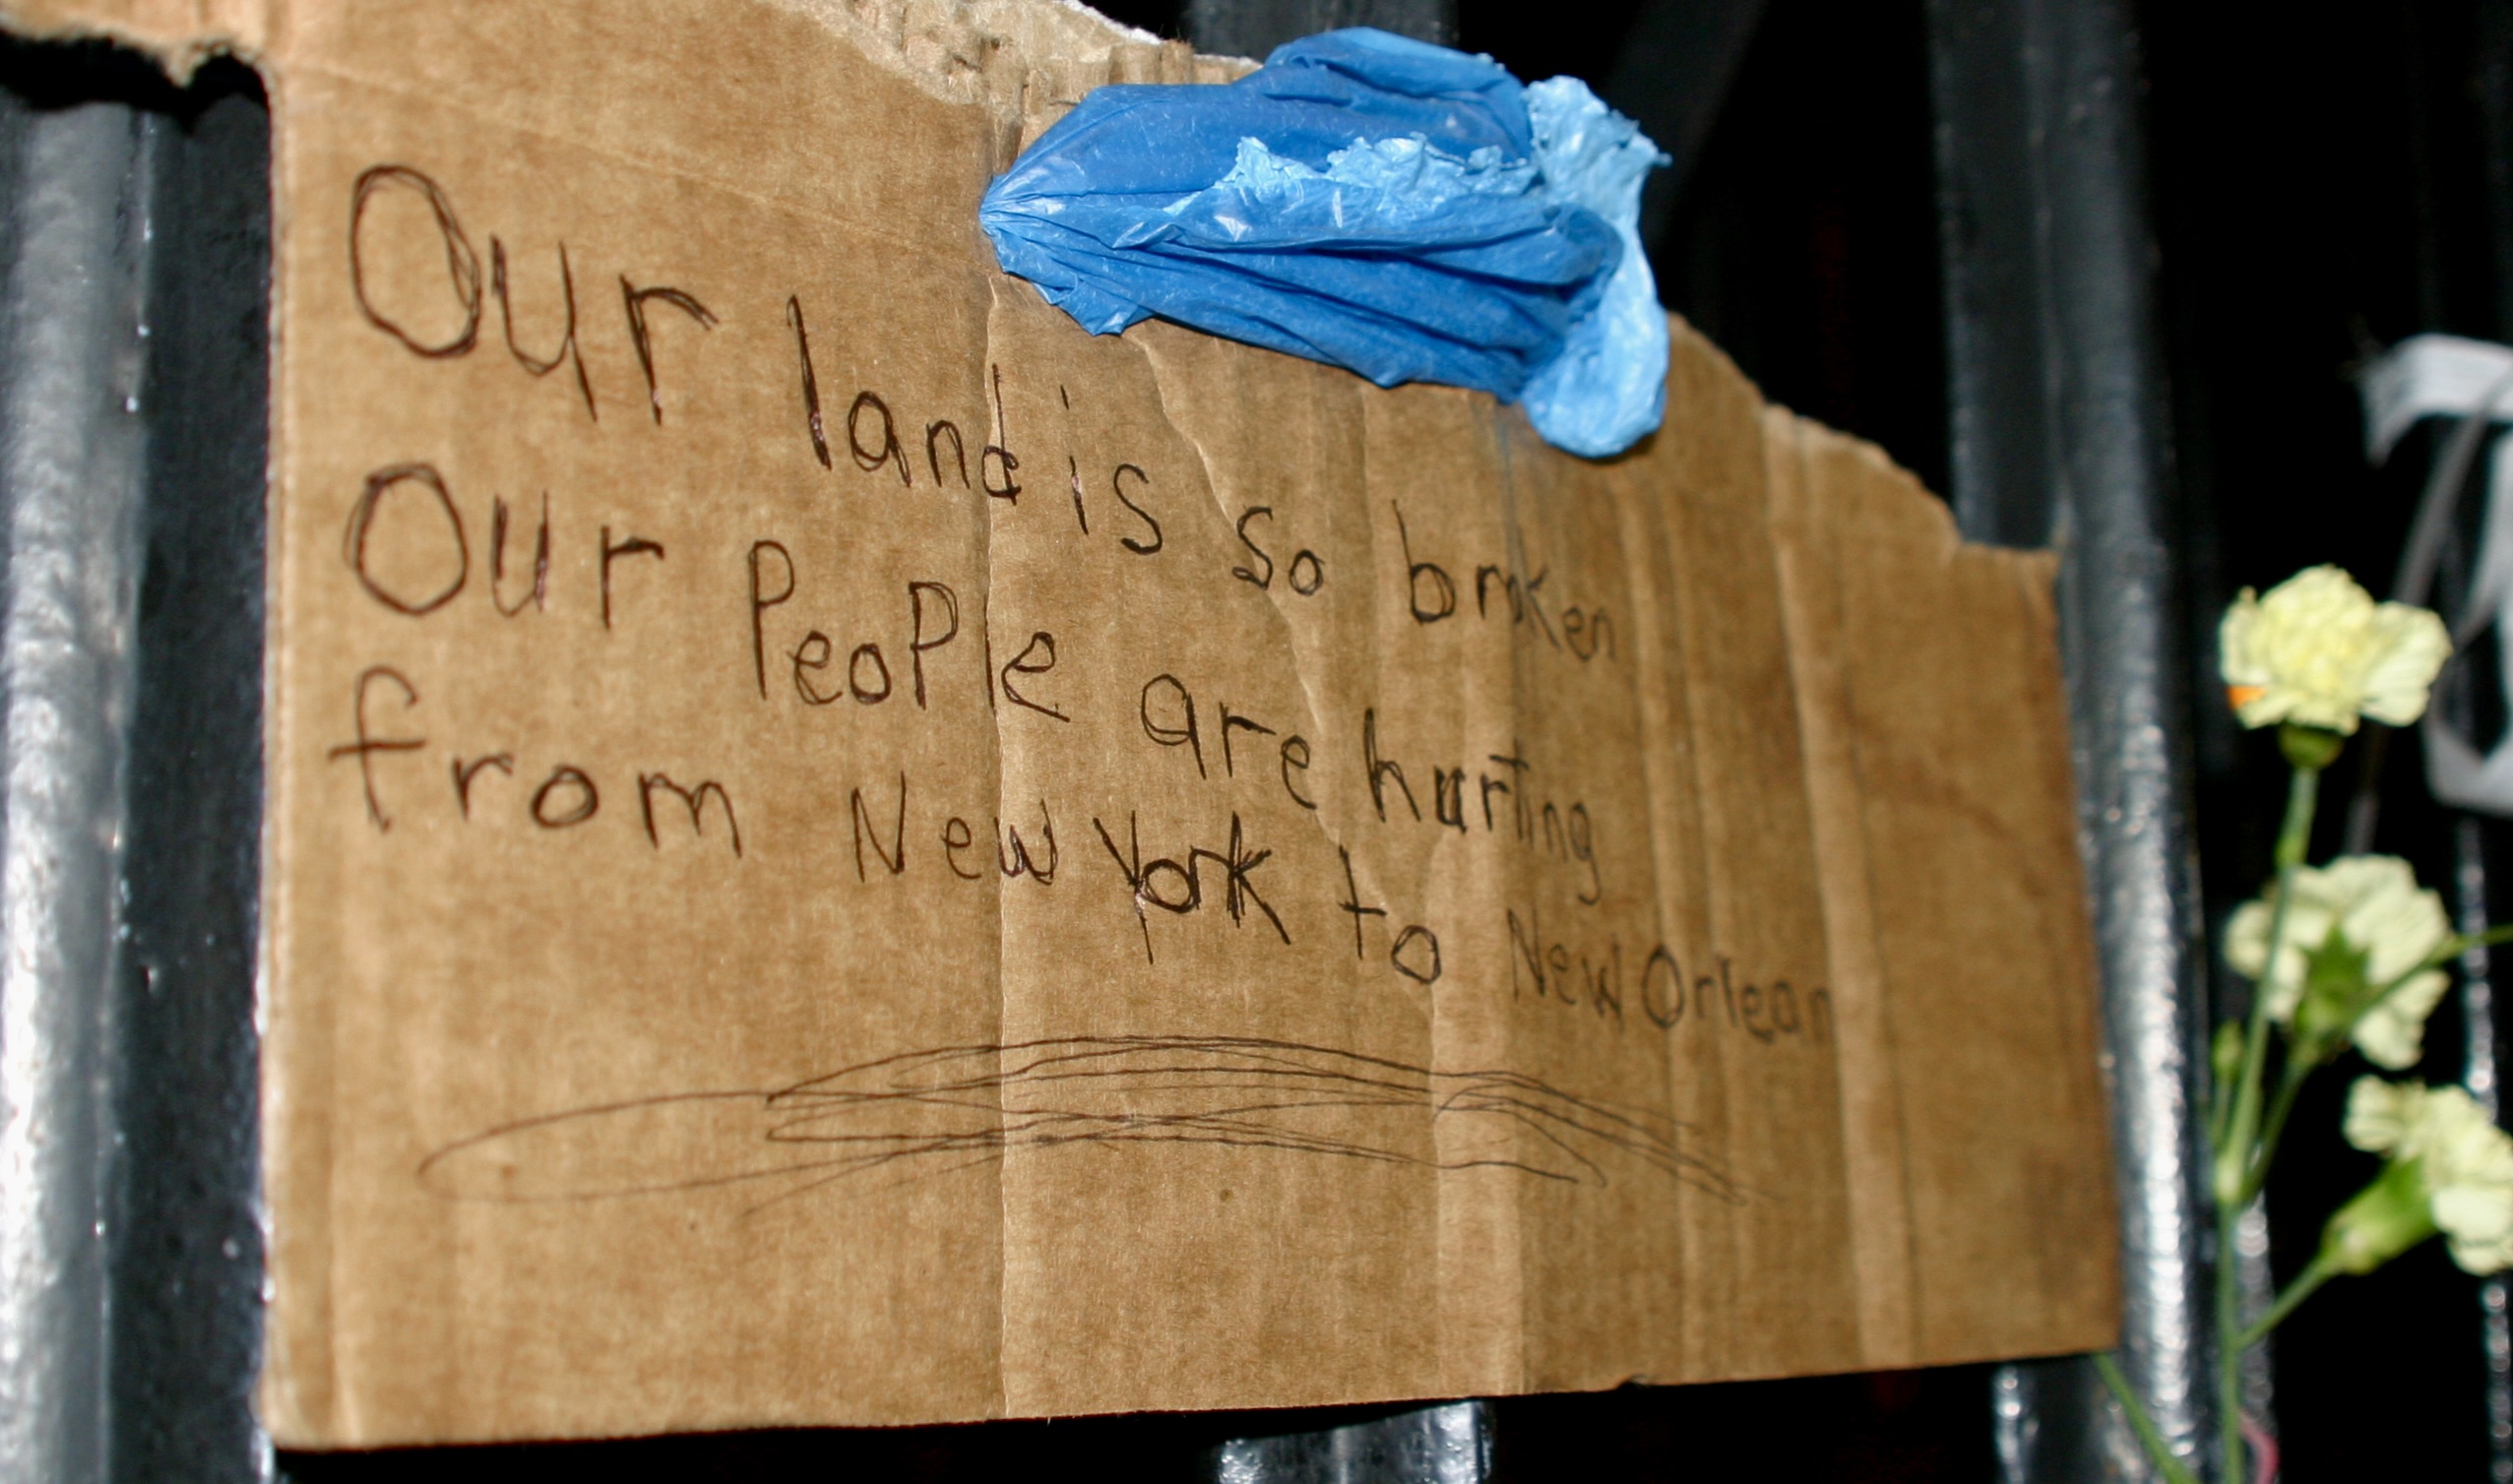 Our land is so broken
Our People are hurting
from New York to New Orlean